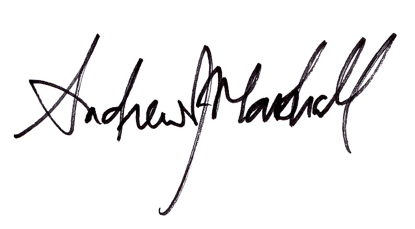 Andrew J Marshall